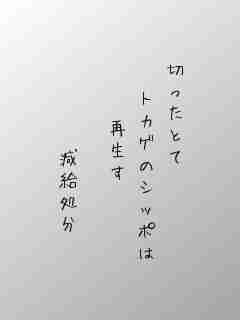 切ったとて
トカゲのシッポは
再生す
減給処分